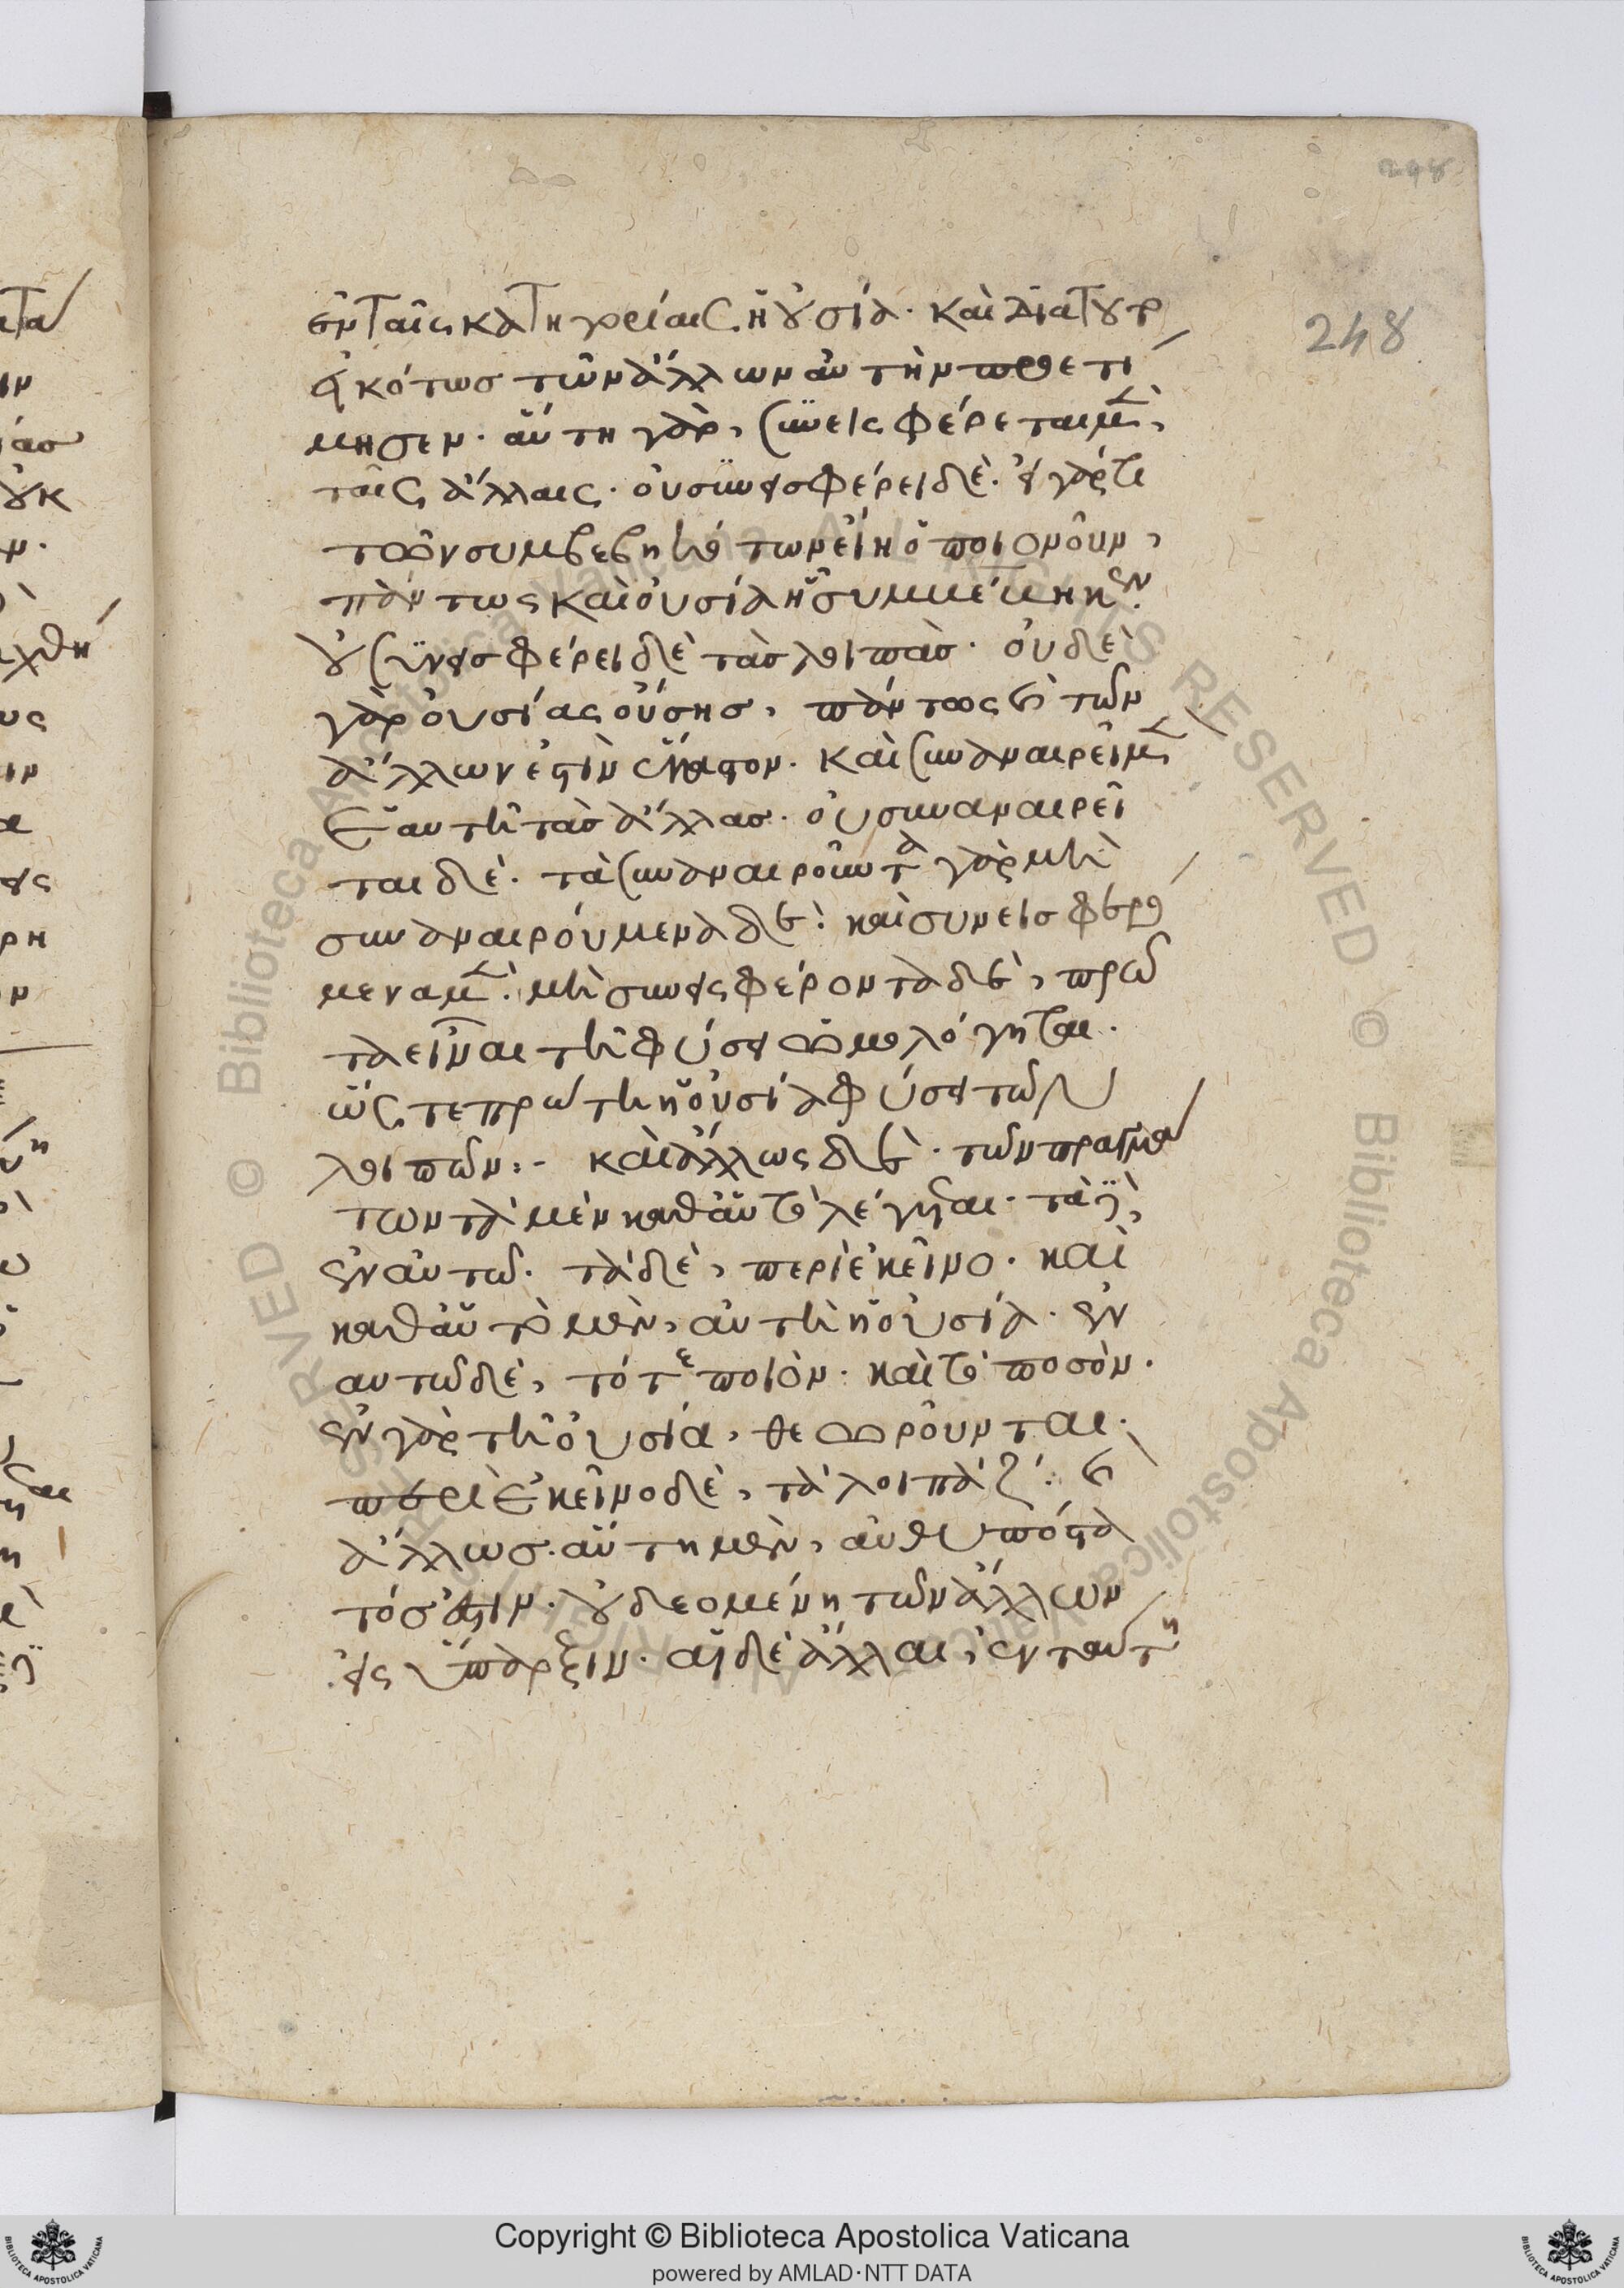 248
ἐν ταῖς κατηγορίαις ἡ οὐσία· καὶ διὰ τοῦτ
εἰκότως τῶν ἄλλων αὐτὴν προετί
μησεν· αὕτη γὰρ, συνεισφέρεται μὲν,
ταῖς ἄλλαις· οὐ συνεισφέρει δέ· εἰ γάρ τι
τῶν συμβεβηκότων εἴη ὁποιονοῦν,
πάντως καὶ οὐσία ἡ συμμείκηην
οὐ συνεισφέρει δὲ τὰς λοιπάς· οὐδὲ
γὰρ οὐσίας οὔσης, πάντως καὶ τῶν
ἄλλων ἐστὶν ἕκαστον· καὶ συναναιρεῖ μὲν
ἑαυτῆ τὰς ἄλλας· οὐ συναναιρεῖ
ται δέ· τὰ συναναιροῦντα γὰρ μὴ
συναναιρούμενα δέ· καὶ συνεισφερό
μενα μὲν· μὴ συνεισφέροντα δὲ, πρῶ
τα εἶναι τῆ φύσει ὡμολόγηται·
ὥστε πρώτη ἡ οὐσία φύσει τῶν
λοιπῶν :- καὶ ἄλλως δέ· τῶν πραγμά
των τὰ μὲν καθ αὑτὸ λέγεται· τὰ δὲ,
ἐν αὐτῶ· τὰ δὲ, περὶ ἐκεῖνο· καὶ
καθ αὑτὸ μὲν, αὐτὴ ἡ οὐσία· ἐν
αυτῶ δὲ, τό τε ποιόν· καὶ τὸ ποσόν·
ἐν γὰρ τῆ οὐσία, θεωροῦνται·
περὶ ἐκεῖνο δὲ, τὰ λοιπὰ ζ΄· καὶ
ἄλλως· αὕτη μὲν, αὐθυπόστα
τός ἐστιν· οὐ δεομένη τῶν ἄλλων
εἰς ὕπαρξιν· αἱ δὲ ἄλλαι, ἐν ταύτη
Copyright © Biblioteca Apostolica Vaticana
powered by AMLAD·NTT DATA